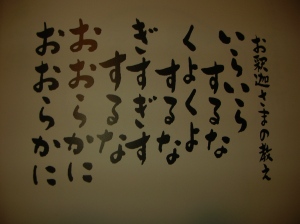 お釈迦さまの教え
いらいら
するな
くよくよ
するな
ぎすぎす
するな
おおらかに
おおらかに